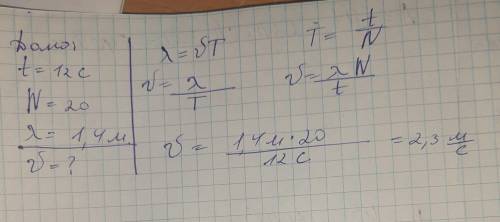 Дано:
t = 12 c
N = 20
λ = 1,4 м
υ = ?
λ = υT
υ = λ/T
T = t/N
υ = λN/t
υ = 1,4 м · 20 / 12 c = 2,3 м/c